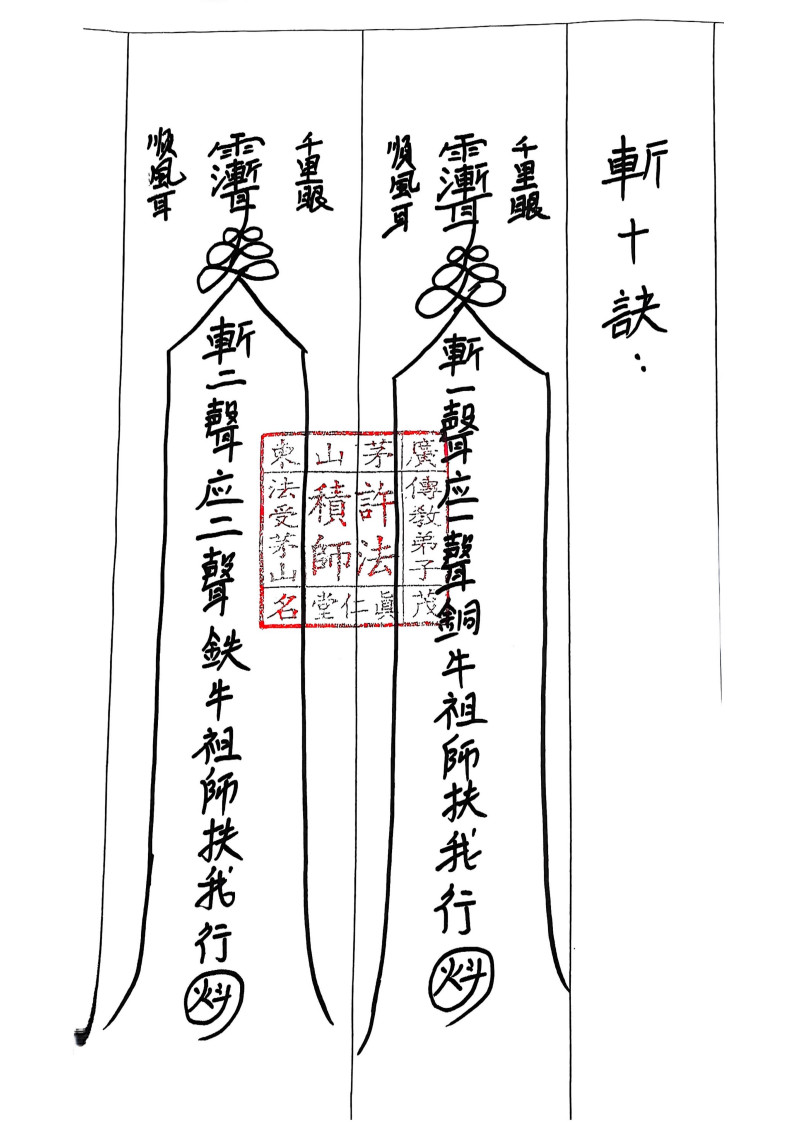 斬十訣：
千里眼
順風耳
斬一聲应一聲銅牛祖師扶我行
千里眼
順風耳
斬二聲应二聲鉄牛祖師扶我行
廣傳教弟子茂
茅許法眞
山積師仁堂
東法受茅山名